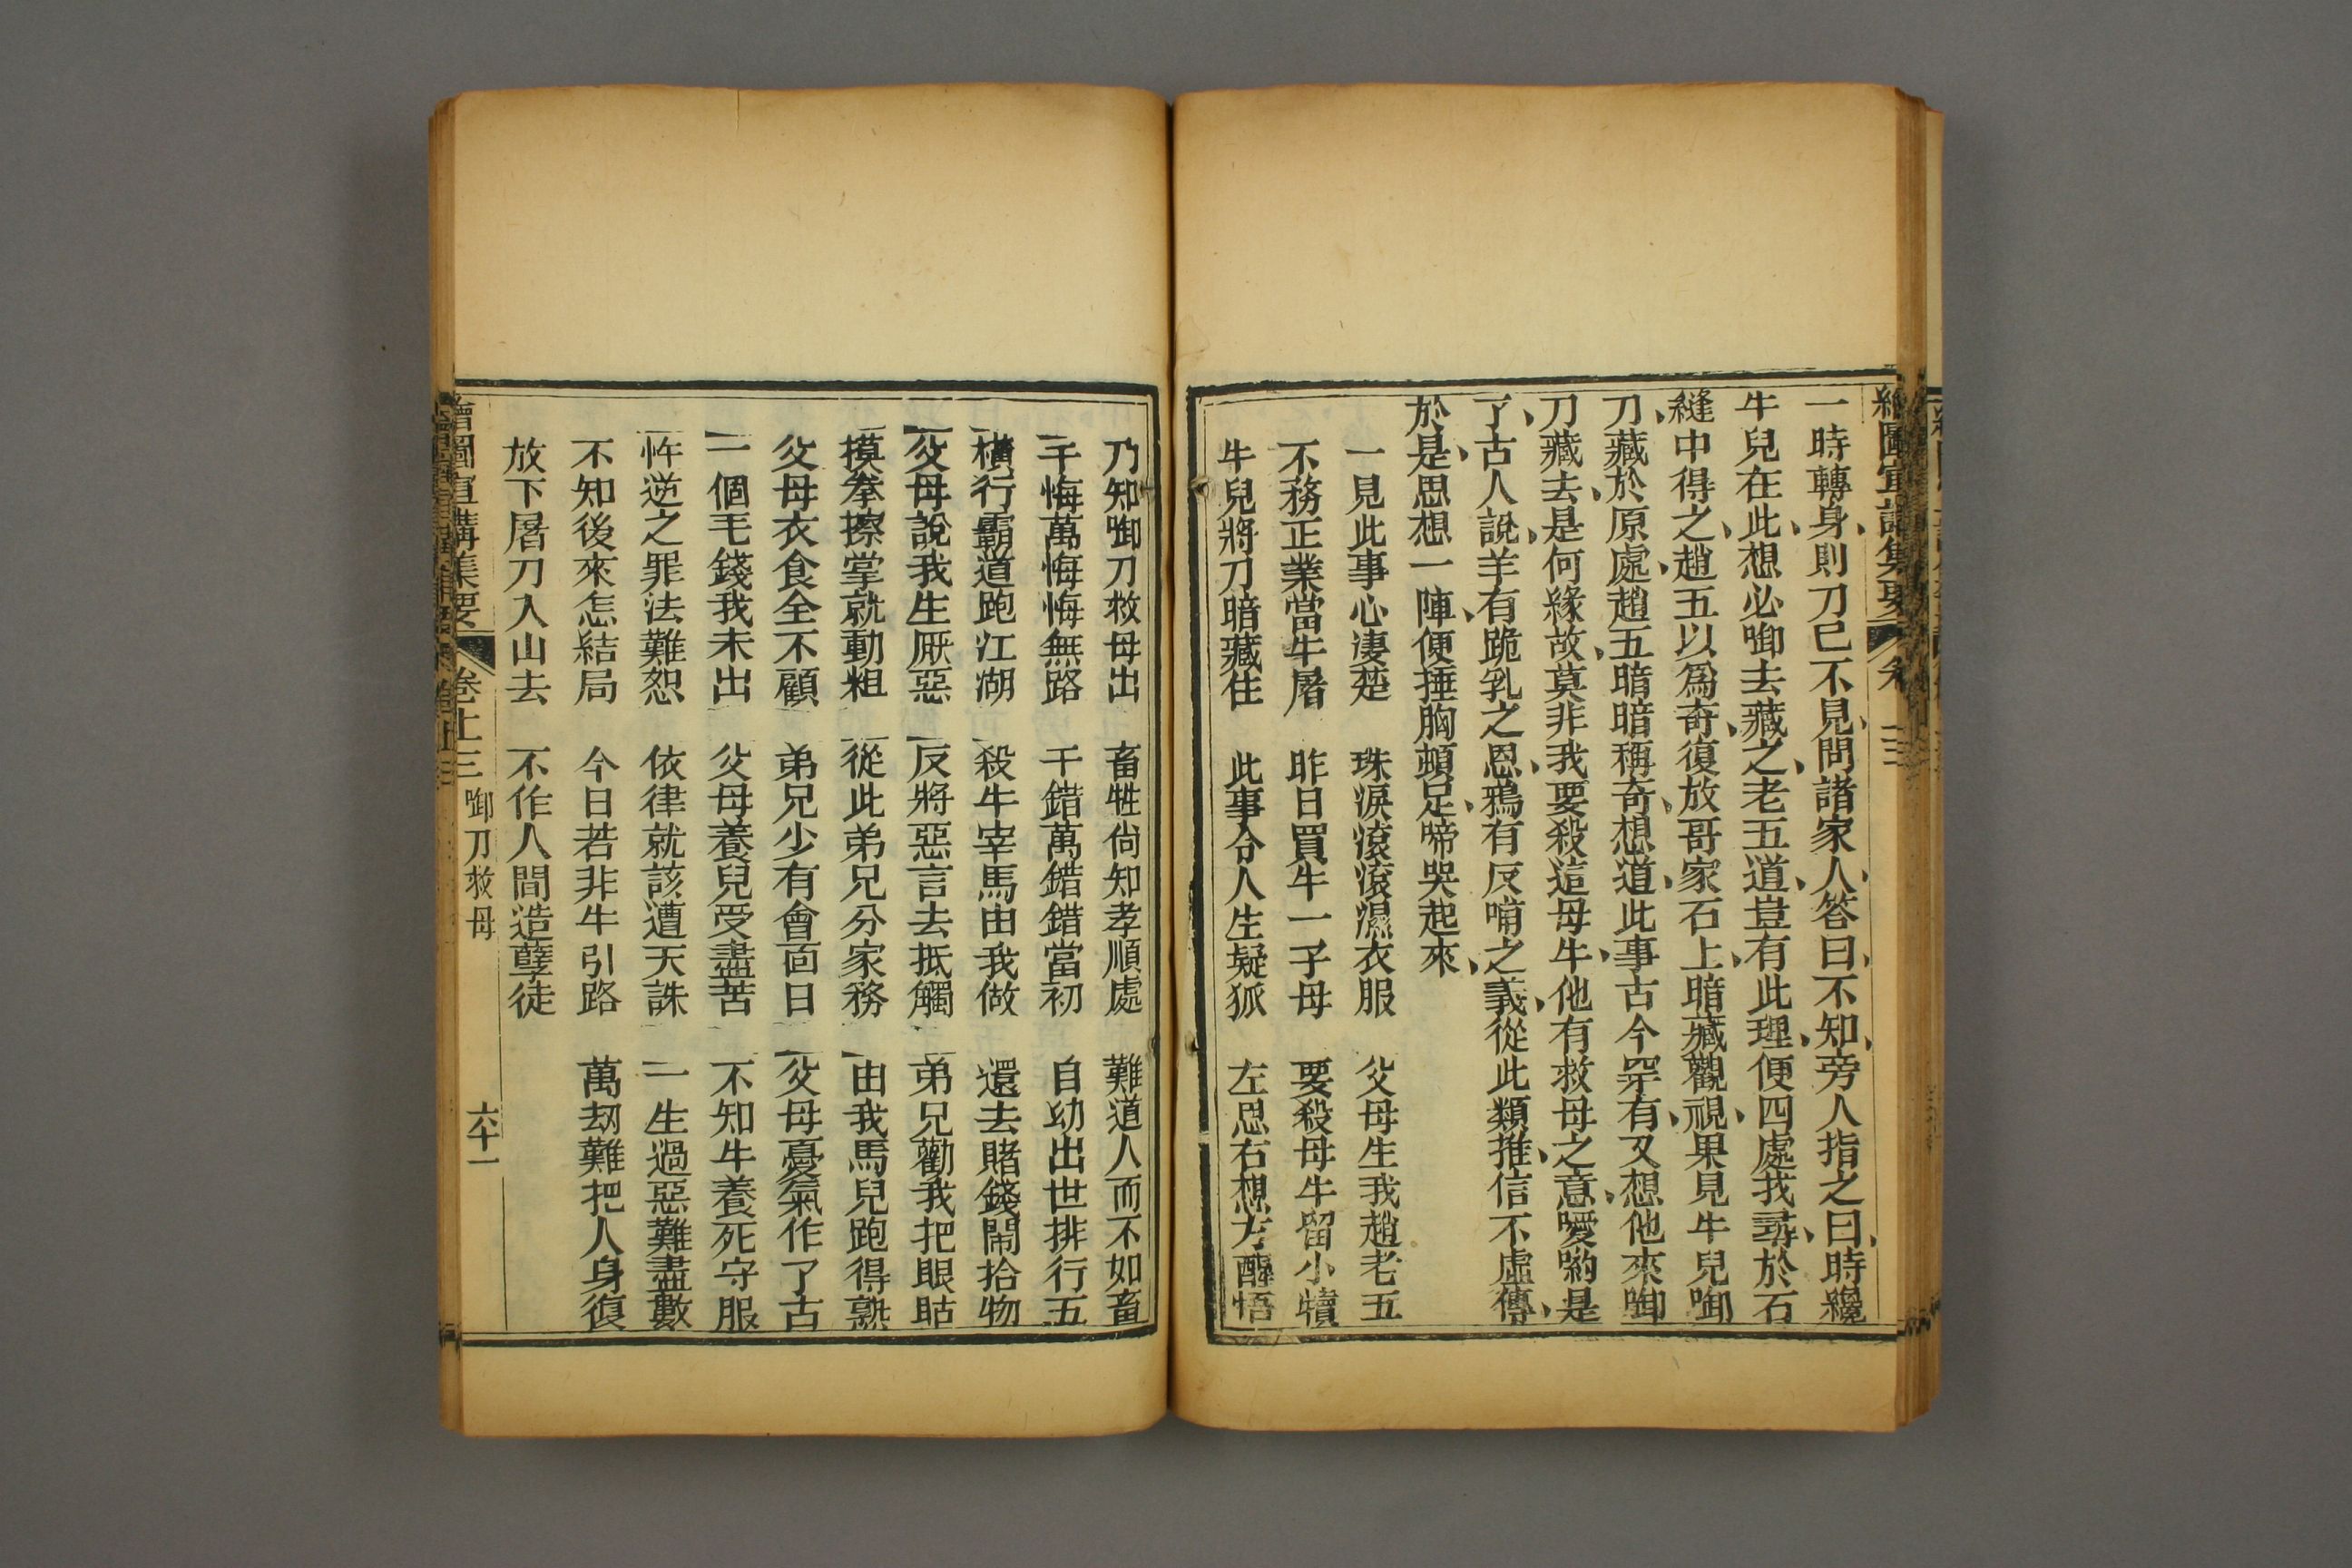 繪圖宣講集要 卷上三
一時轉身則刀已不見問諸家人答曰不知旁人指之曰時纔
牛兒在此想必啣去藏之老五道豈有此理便四處找尋於石
縫中得之趙五以爲奇復放哥家石上暗藏觀視果見牛兒啣
刀藏於原處趙五暗暗稱奇想道此事古今罕有又想他來啣
刀藏去是何緣故莫非我要殺這母牛他有救母之意噯喲是
了古人說羊有跪乳之恩鴉有反哺之義從此類推信不虛傳
於是思想一陣便捶胸頓足啼哭起來
一見此事心淒楚 珠淚滾滾濕衣服 父母生我趙老五
不務正業當牛屠 昨日買牛一子母 要殺母牛留小犢
牛兒將刀暗藏住 此事令人生疑狐 左思右想方醒悟
乃知啣刀救母出 畜牲尙知孝順處 難道人而不如畜
千悔萬悔悔無路 千錯萬錯錯當初 自幼出世排行五
橫行霸道跑江湖 殺牛宰馬由我做 還去賭錢鬧拾物
父母說我生厭惡 反將惡言去抵觸 弟兄勸我把眼䀦
摸拳擦掌就動粗 從此弟兄分家務 由我馬兒跑得熟
父母衣食全不顧 弟兄少有會面日 父母憂氣作了古
一個毛錢我未出 父母養兒受盡苦 不知牛養死守服
忤逆之罪法難恕 依律就該遭天誅 一生過惡難盡數
不知後來怎結局 今日若非牛引路 萬刼難把人身復
放下屠刀入山去 不作人間造孽徒
繪圖宣講集要 卷上三 啣刀救母 六十一